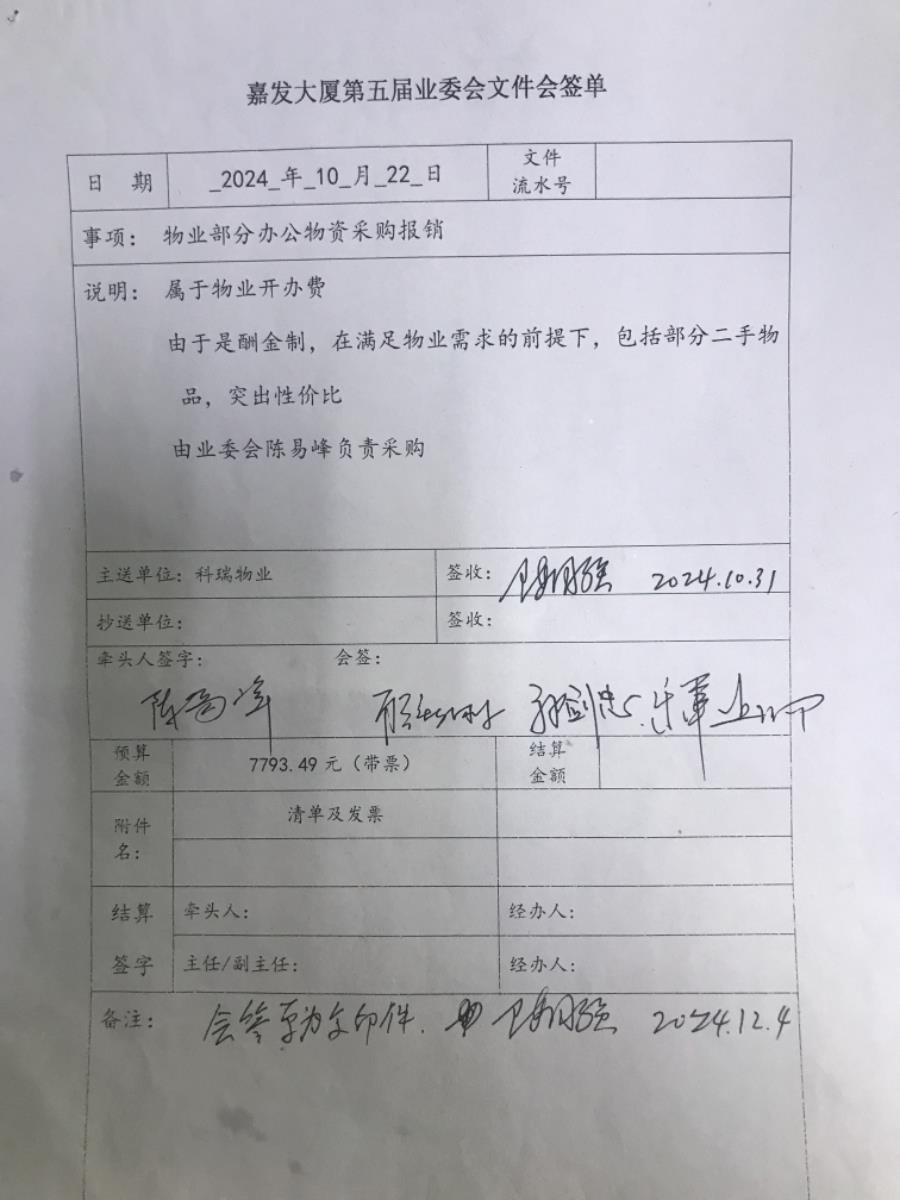 嘉发大厦第五届业委会文件会签单
日 期 _2024_年_10_月_22_日 文件流水号
事项： 物业部分办公物资采购报销
说明： 属于物业开办费
由于是酬金制，在满足物业需求的前提下，包括部分二手物
品，突出性价比
由业委会陈易峰负责采购
主送单位：科瑞物业 签收： 2024.10.31
抄送单位： 签收：
牵头人签字： 会签：
陈易峰 孙剑忠
预算金额 7793.49 元（带票） 结算金额
附件名： 清单及发票
结算 牵头人： 经办人：
签字 主任/副主任： 经办人：
备注： 会签单为复印件. 2024.12.4